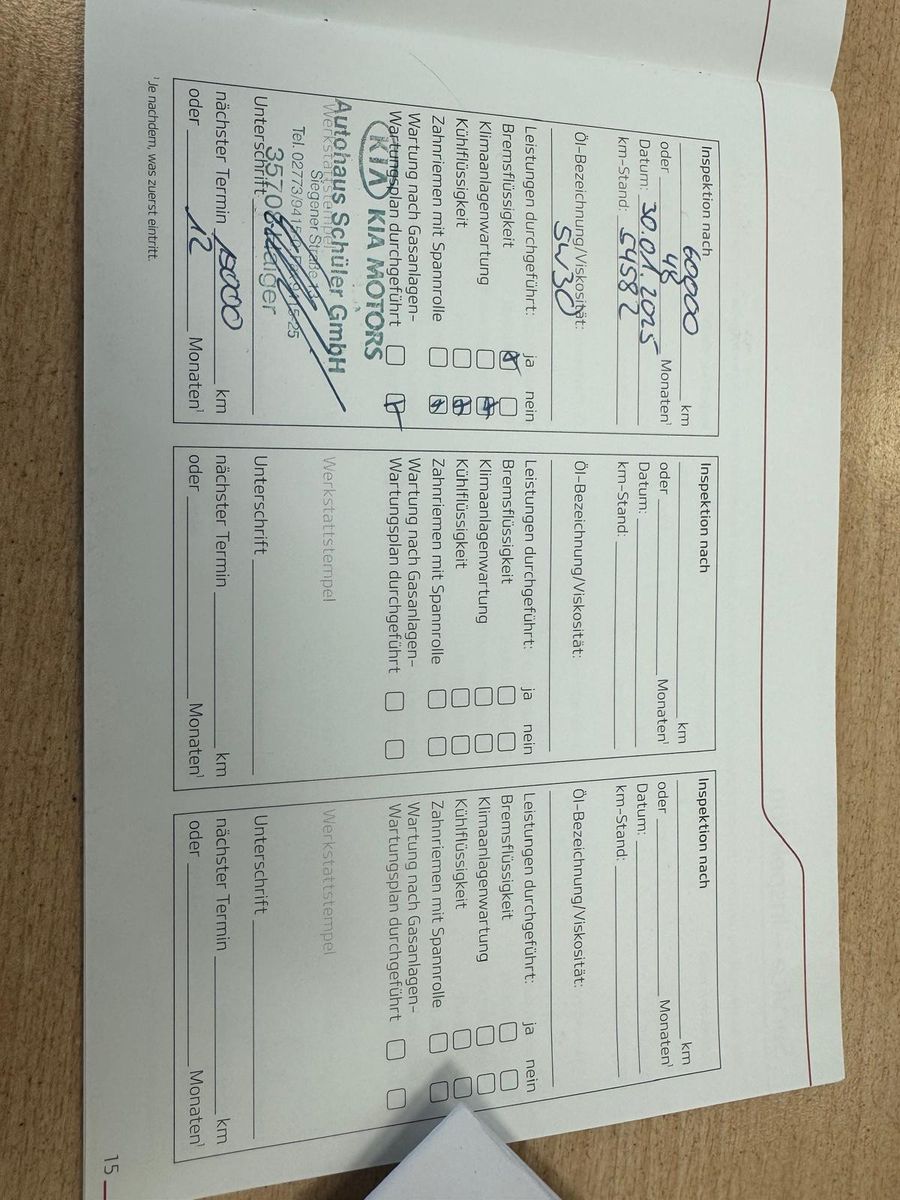 Inspektion nach
60000 km
oder 48 Monaten¹
Datum: 30.01.2025
km-Stand: 54582
Öl-Bezeichnung/Viskosität:
5W30
Leistungen durchgeführt: ja nein
Bremsflüssigkeit
Klimaanlagenwartung
Kühlflüssigkeit
Zahnriemen mit Spannrolle
Wartung nach Gasanlagen-
Wartungsplan durchgeführt
KIA KIA MOTORS
Autohaus Schüler GmbH
Werkstattstempel
Siegener Straße
Tel. 02773/9415
Unterschrift
nächster Termin 15000 km
oder 12 Monaten¹
Inspektion nach
km
oder Monaten¹
Datum:
km-Stand:
Öl-Bezeichnung/Viskosität:
Leistungen durchgeführt: ja nein
Bremsflüssigkeit
Klimaanlagenwartung
Kühlflüssigkeit
Zahnriemen mit Spannrolle
Wartung nach Gasanlagen-
Wartungsplan durchgeführt
Werkstattstempel
Unterschrift
nächster Termin km
oder Monaten¹
Inspektion nach
km
oder Monaten¹
Datum:
km-Stand:
Öl-Bezeichnung/Viskosität:
Leistungen durchgeführt: ja nein
Bremsflüssigkeit
Klimaanlagenwartung
Kühlflüssigkeit
Zahnriemen mit Spannrolle
Wartung nach Gasanlagen-
Wartungsplan durchgeführt
Werkstattstempel
Unterschrift
nächster Termin km
oder Monaten¹
¹Je nachdem, was zuerst eintritt.
15